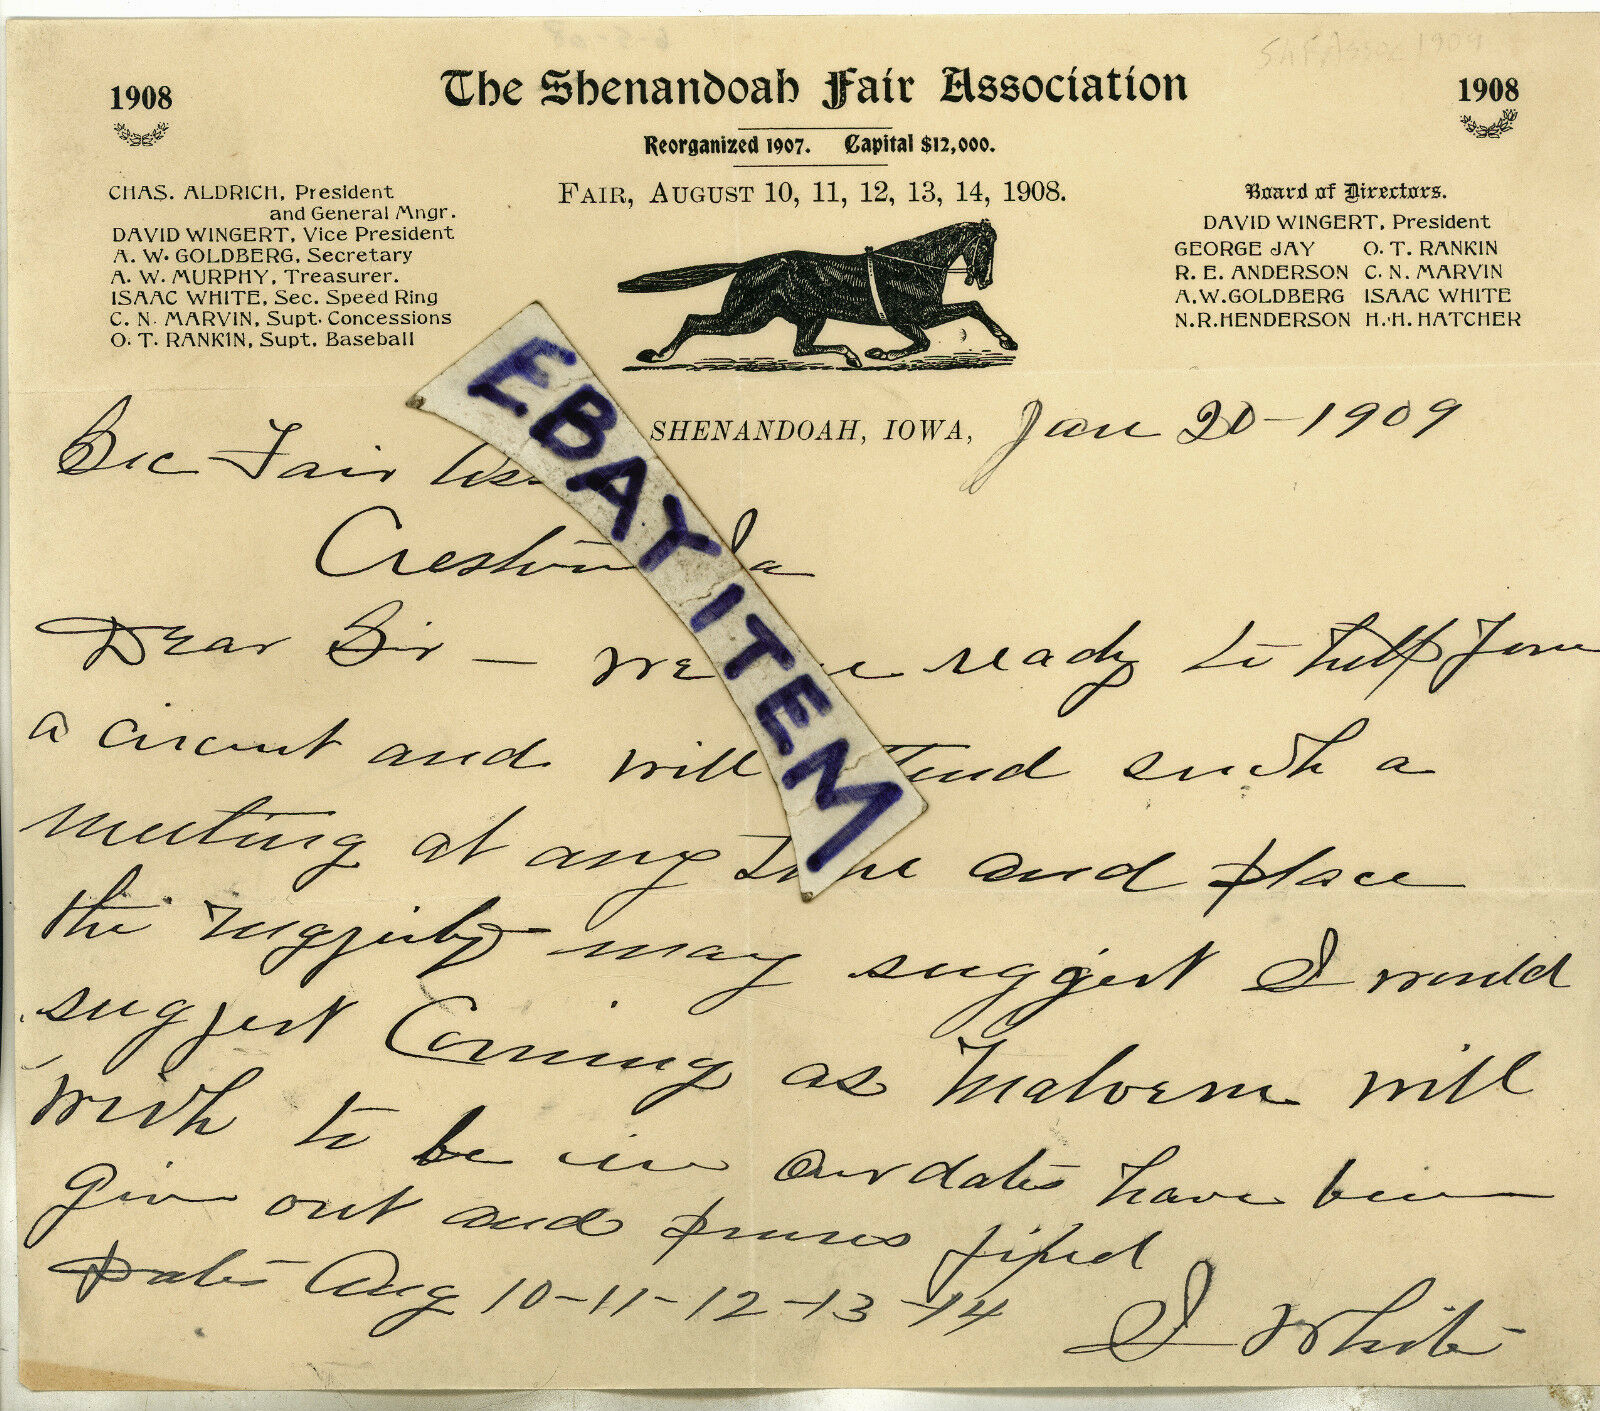 1908
The Shenandoah Fair Association
1908
Reorganized 1907. Capital $12,000.
CHAS. ALDRICH, President
and General Mngr.
DAVID WINGERT, Vice President
A. W. GOLDBERG, Secretary
A. W. MURPHY, Treasurer.
ISAAC WHITE, Sec. Speed Ring
C. N. MARVIN, Supt. Concessions
O. T. RANKIN, Supt. Baseball
FAIR, AUGUST 10, 11, 12, 13, 14, 1908.
Board of Directors.
DAVID WINGERT, President
GEORGE JAY O. T. RANKIN
R. E. ANDERSON C. N. MARVIN
A.W.GOLDBERG ISAAC WHITE
N.R.HENDERSON H. H. HATCHER
EBAY ITEM
SHENANDOAH, IOWA, Jan 20-1909
Sec Fair Ass
Creston Ia
Dear Sir - we ready to help form
a circuit and will attend such a
meeting at any time and place
the majority may suggest I would
suggest Corning as Malvern will
wish to be in our dates have been
given out and purses fixed
Dates Aug 10-11-12-13-14
I White